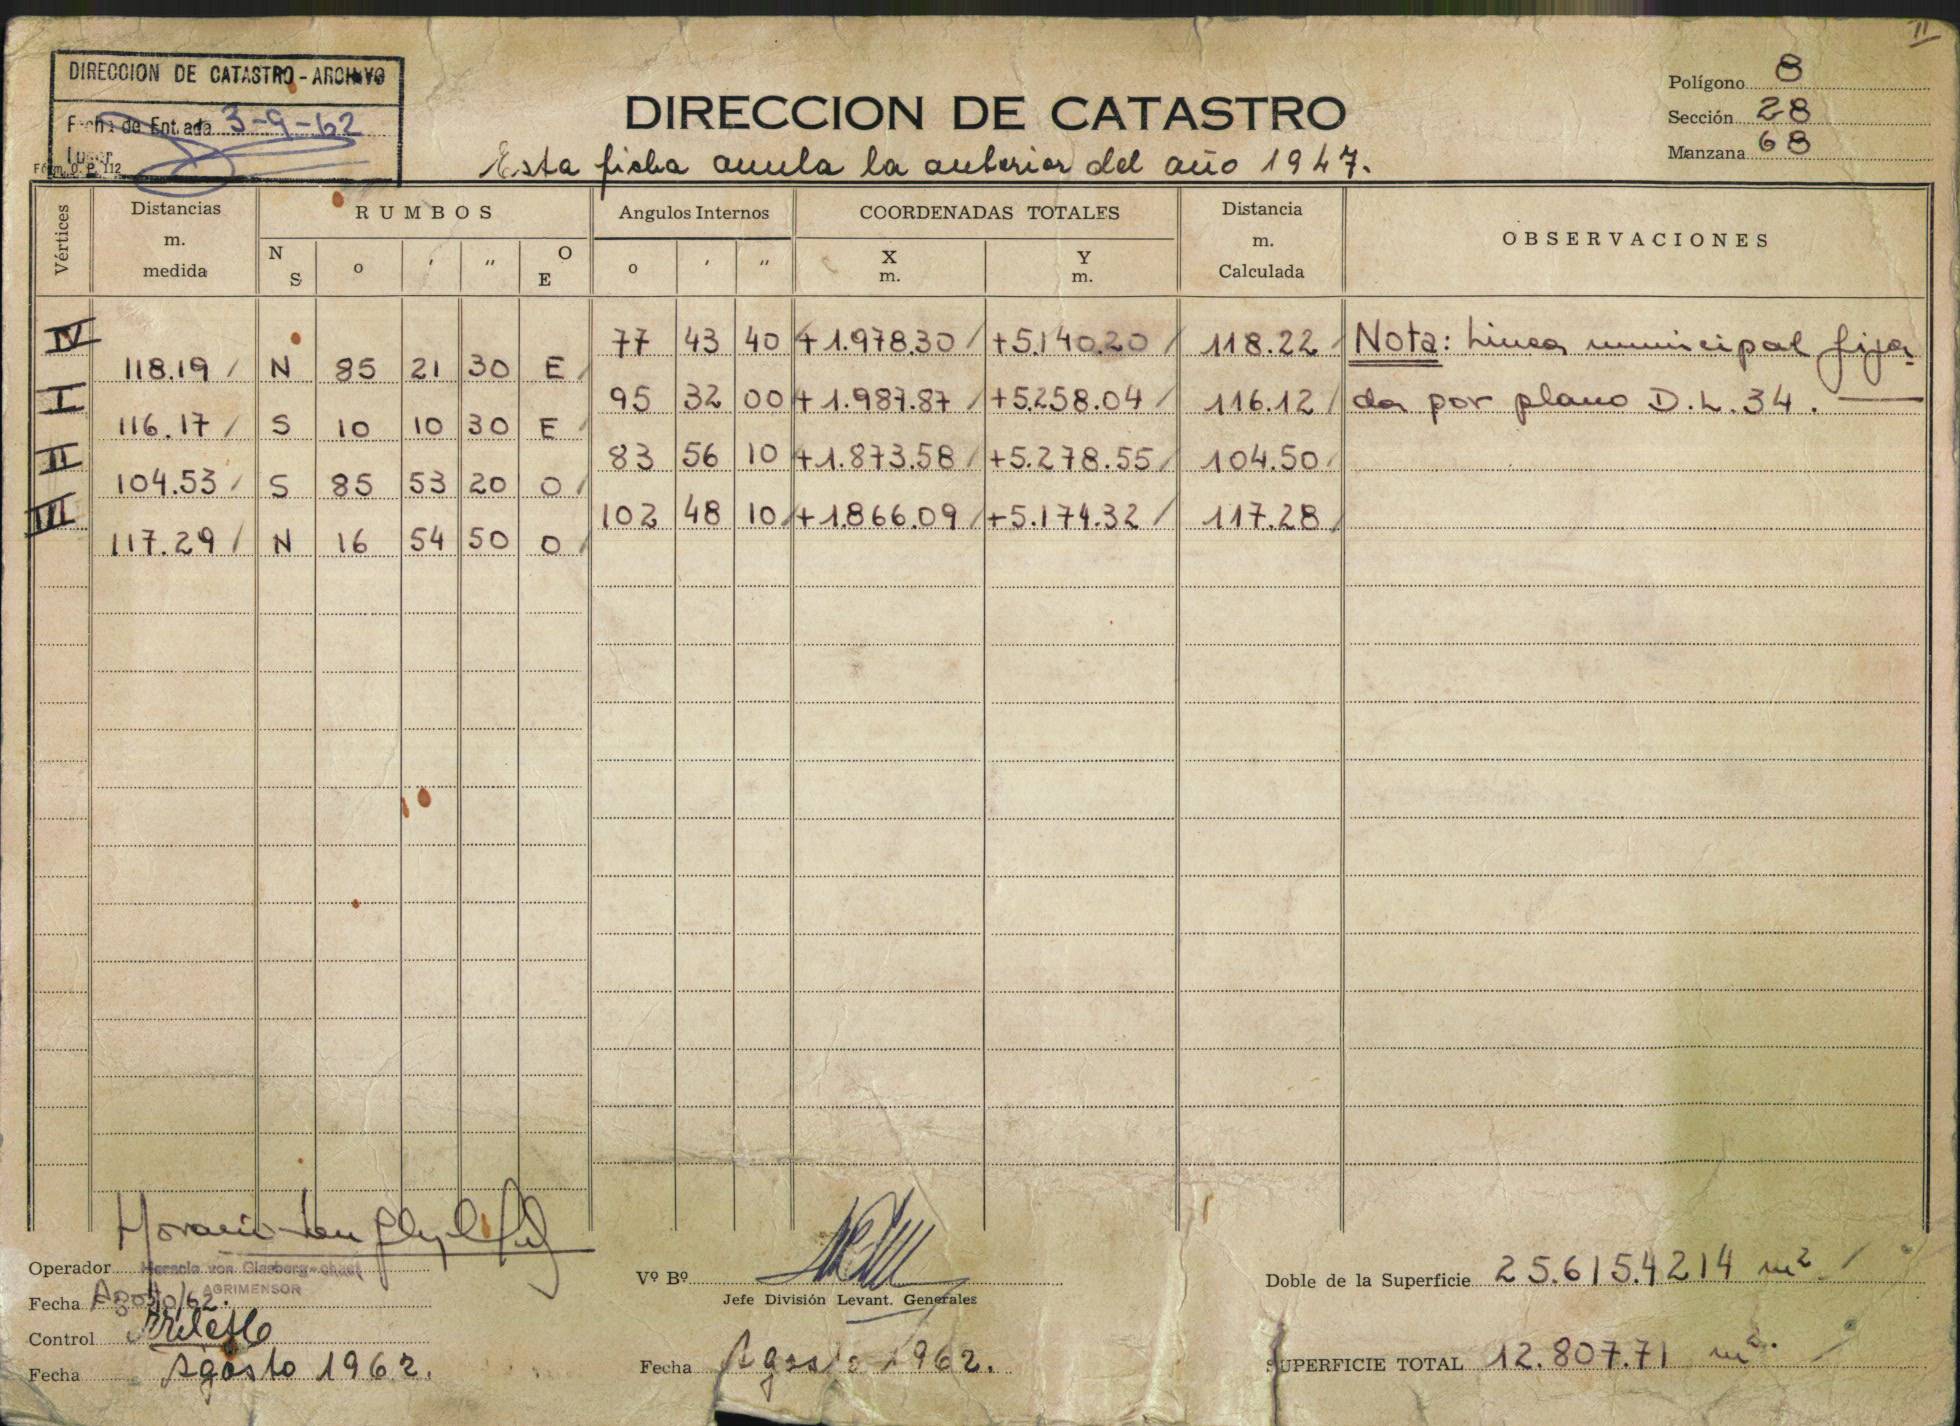 II
DIRECCION DE CATASTRO - ARCHIVO
Fecha de Entrada 3-9-62
Lugar
Fórm. O. P. 112
DIRECCION DE CATASTRO
Esta ficha anula la anterior del año 1947.
Polígono 8
Sección 28
Manzana 68
Vértices
Distancias m. medida
RUMBOS
N S ° ' " O E
Angulos Internos
° ' "
COORDENADAS TOTALES
X m. Y m.
Distancia m. Calculada
OBSERVACIONES
IV 77 43 40 +1.978.30 +5.140.20 118.22 Nota: Linea municipal fija-
118.19 N 85 21 30 E
I 95 32 00 +1.987.87 +5.258.04 116.12 da por plano D.L. 34.
116.17 S 10 10 30 E
II 83 56 10 +1.873.58 +5.278.55 104.50
104.53 S 85 53 20 O
III 102 48 10 +1.866.09 +5.174.32 117.28
117.29 N 16 54 50 O
Operador
AGRIMENSOR
Fecha Agosto/62.
Control
Fecha Agosto 1962.
Vº Bº
Jefe División Levant. Generales
Fecha Agosto 1962.
Doble de la Superficie 25.615.4214 m².
SUPERFICIE TOTAL 12.807.71 m².